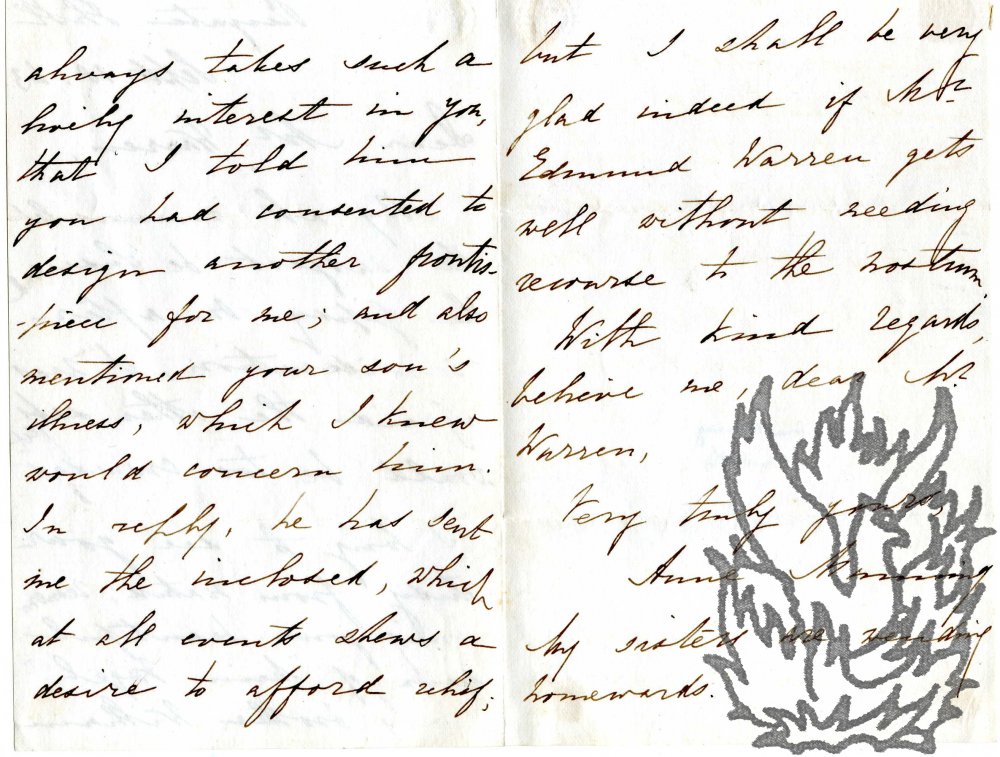 always takes such a
lively interest in you,
that I told him
you had consented to
design another frontis-
-piece for me; and also
mentioned your son's
illness, which I knew
would concern him.
In reply, he has sent
me the inclosed, which
at all events shews a
desire to afford relief;
but I shall be very
glad indeed if Mr.
Edmund Warren gets
well without needing
recourse to the nostrum.
With kind regards,
believe me, dear Mr.
Warren,
Very truly yours,
Anne Manning
My sisters are wending
homewards.